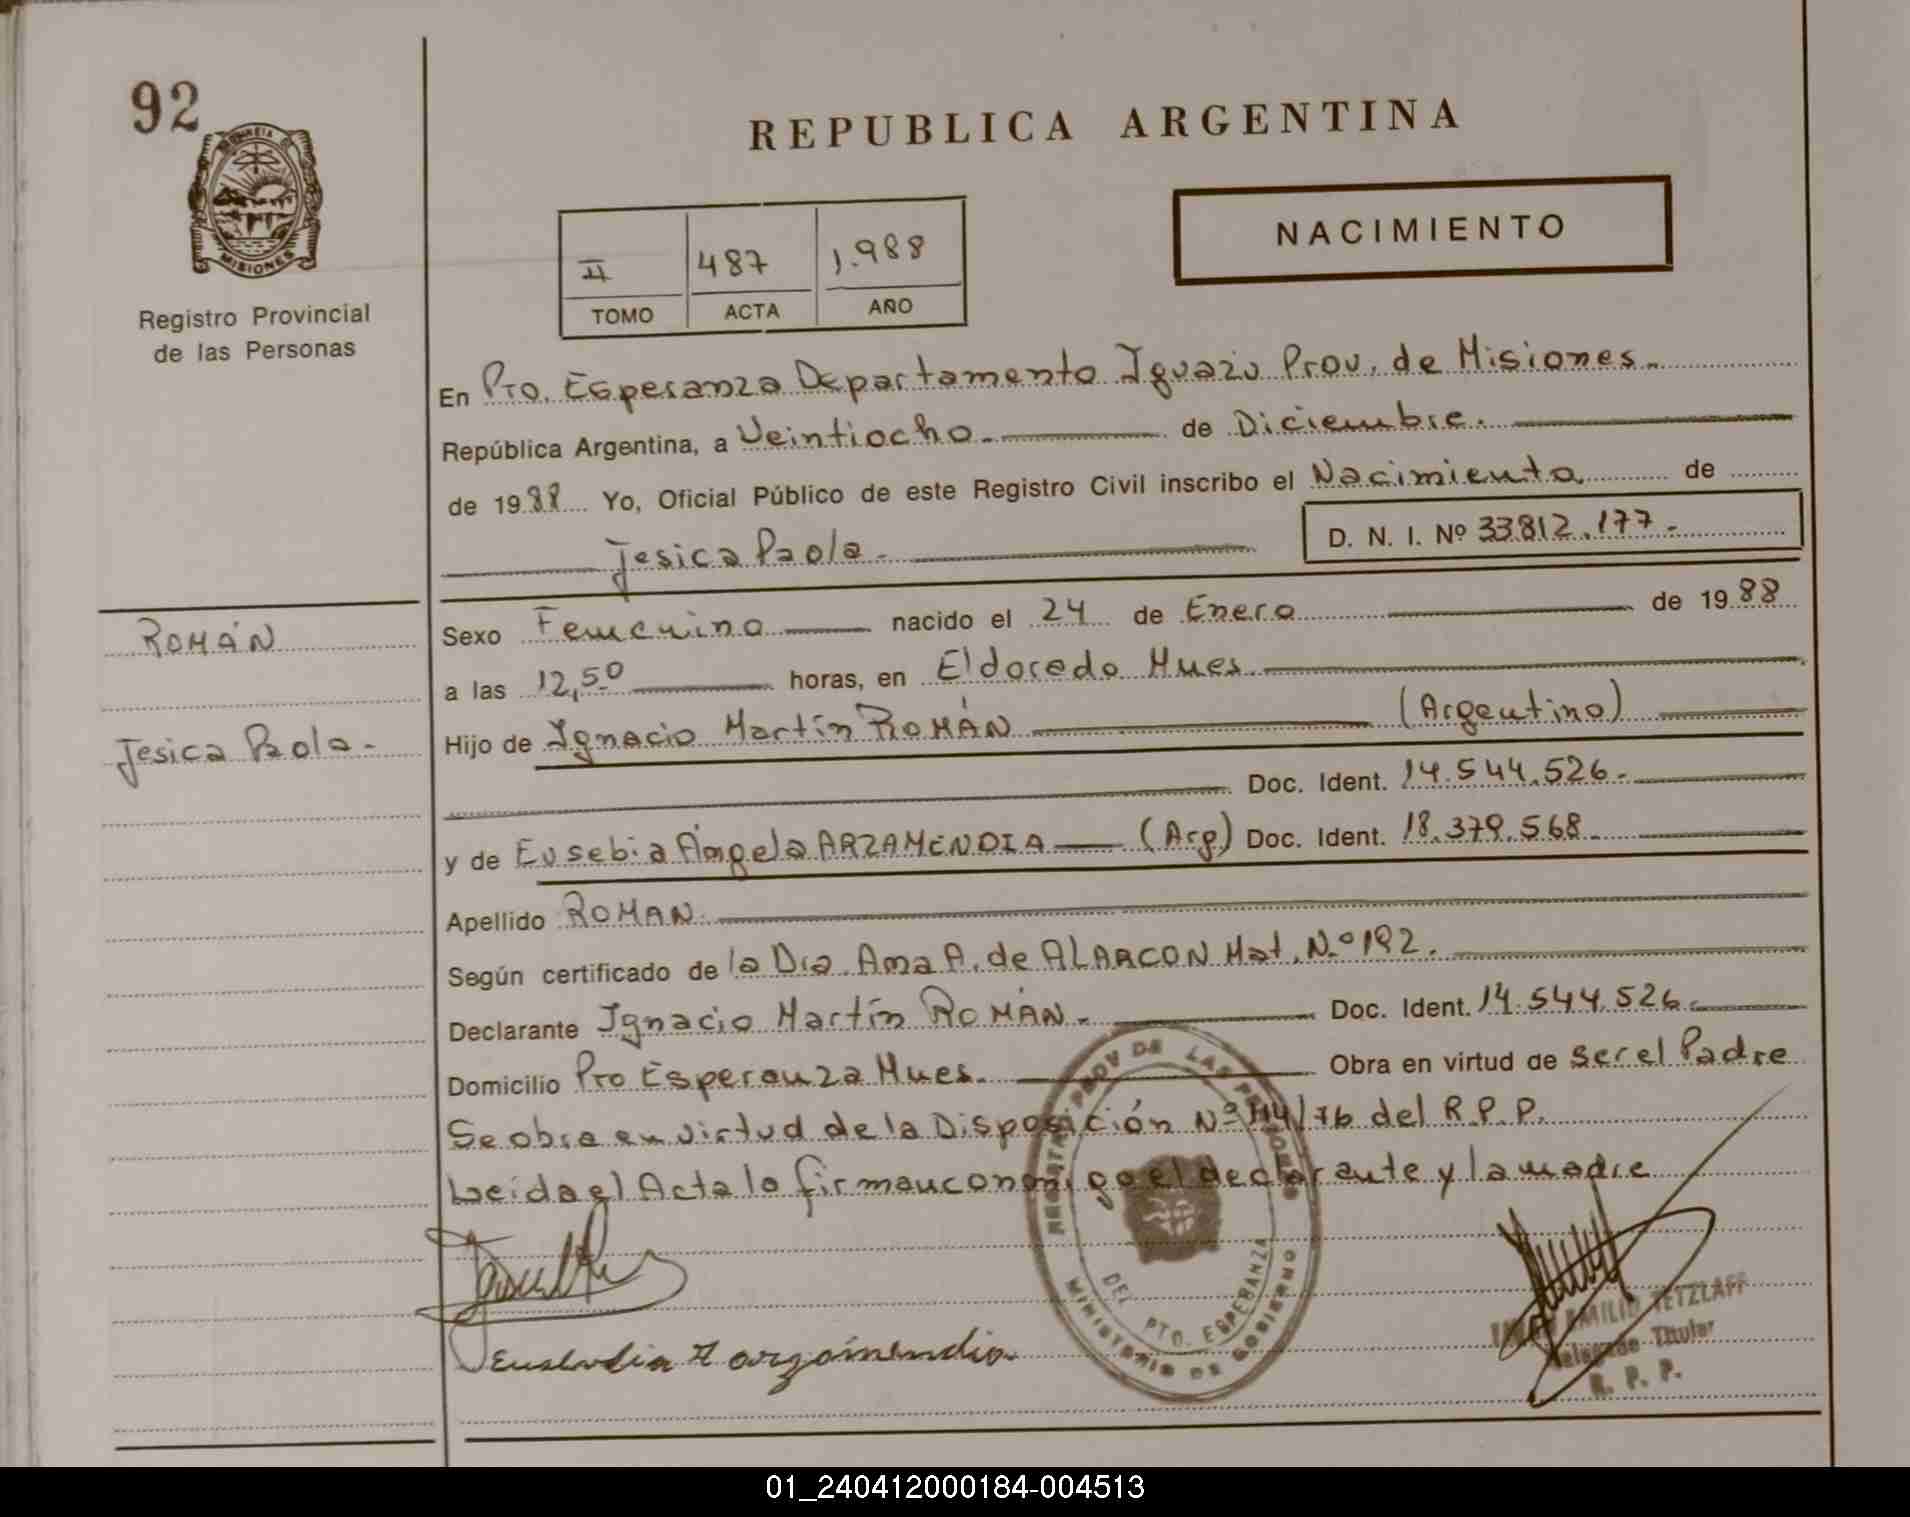 92
REPUBLICA ARGENTINA
MISIONES
Registro Provincial
de las Personas
II 487 1.988
TOMO ACTA AÑO
NACIMIENTO
En Pto. Esperanza Departamento Iguazú Prov. de Misiones.
República Argentina, a Veintiocho. de Diciembre.
de 1988 Yo, Oficial Público de este Registro Civil inscribo el Nacimiento de
Jesica Paola. D. N. I. Nº 33812.177.
ROMÁN
Jesica Paola.
Sexo Femenino nacido el 24 de Enero de 1988
a las 12,50 horas, en Eldorado Mnes.
Hijo de Ignacio Martín ROMÁN (Argentino)
Doc. Ident. 14.544.526.
y de Eusebia Ángela ARZAMENDIA (Arg) Doc. Ident. 18.379.568.
Apellido ROMAN.
Según certificado de la Dra. Ana A. de ALARCON Mat. N.º 192.
Declarante Ignacio Martín ROMÁN. Doc. Ident. 14.544.526.
Domicilio Pto Esperanza Mnes. Obra en virtud de ser el Padre
Se obra en virtud de la Disposición Nº 114/76 del R.P.P.
Leída el Acta la firman conmigo el declarante y la madre
PROV DE LAS PERSONAS
DEL PTO. ESPERANZA
MINISTERIO DE GOBIERNO
arzamendia
EMILIO TETZLAFF
Delegado Titular
R. P. P.
01_240412000184-004513